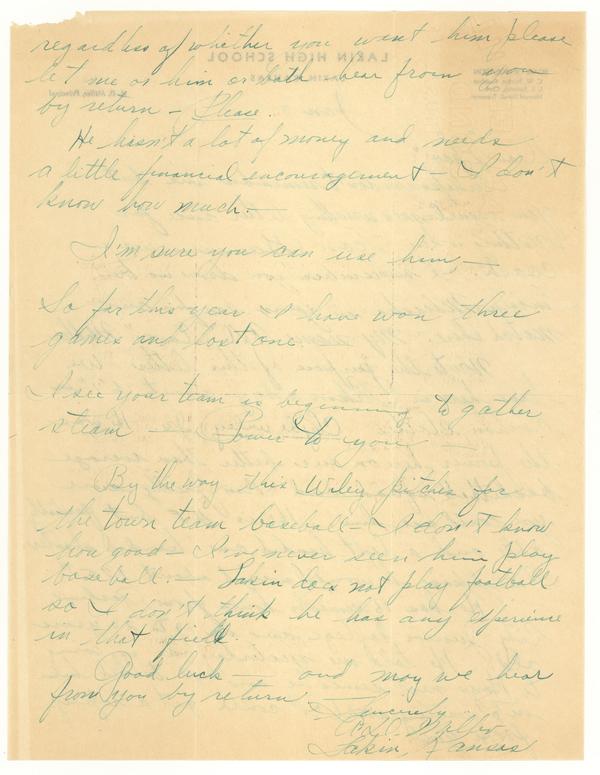 regardless of whether you want him please
let me or him or both hear from you
by return - Please.
He hasn't a lot of money and needs
a little financial encouragement - I don't
know how much. -
I'm sure you can use him -
So far this year I have won three
games and lost one.
I see your team is beginning to gather
steam - Power to you -
By the way this Wiley pitches for
the town team baseball - I don't know
how good - I've never seen him play
baseball. - Lakin does not play football
so I don't think he has any experience
in that field.
Good luck - and may we hear
from you by return -
Sincerely
Miller
Lakin, Kansas
LAKIN HIGH SCHOOL